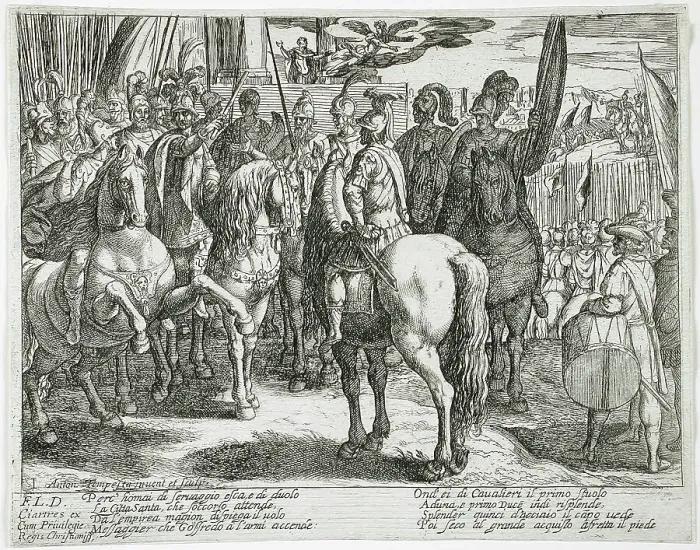 1 Anton. Tempesta invent et sculp.
F.L.D.
Ciartres ex
Cum Privilegio
Regis Christianiss
Perc' homai di servaggio esca, e di duolo
La Citta Santa, che soccorso attende,
Da l'empirea magion dispiega il volo
Messaggier che Goffredo à l'armi accende:
Ond' ei di Cavalieri il primo stuolo
Aduna, e primo Duce indi risplende.
Splender quinci d'acciaio il capo vede
Poi seco al grande acquisto affretta il piede